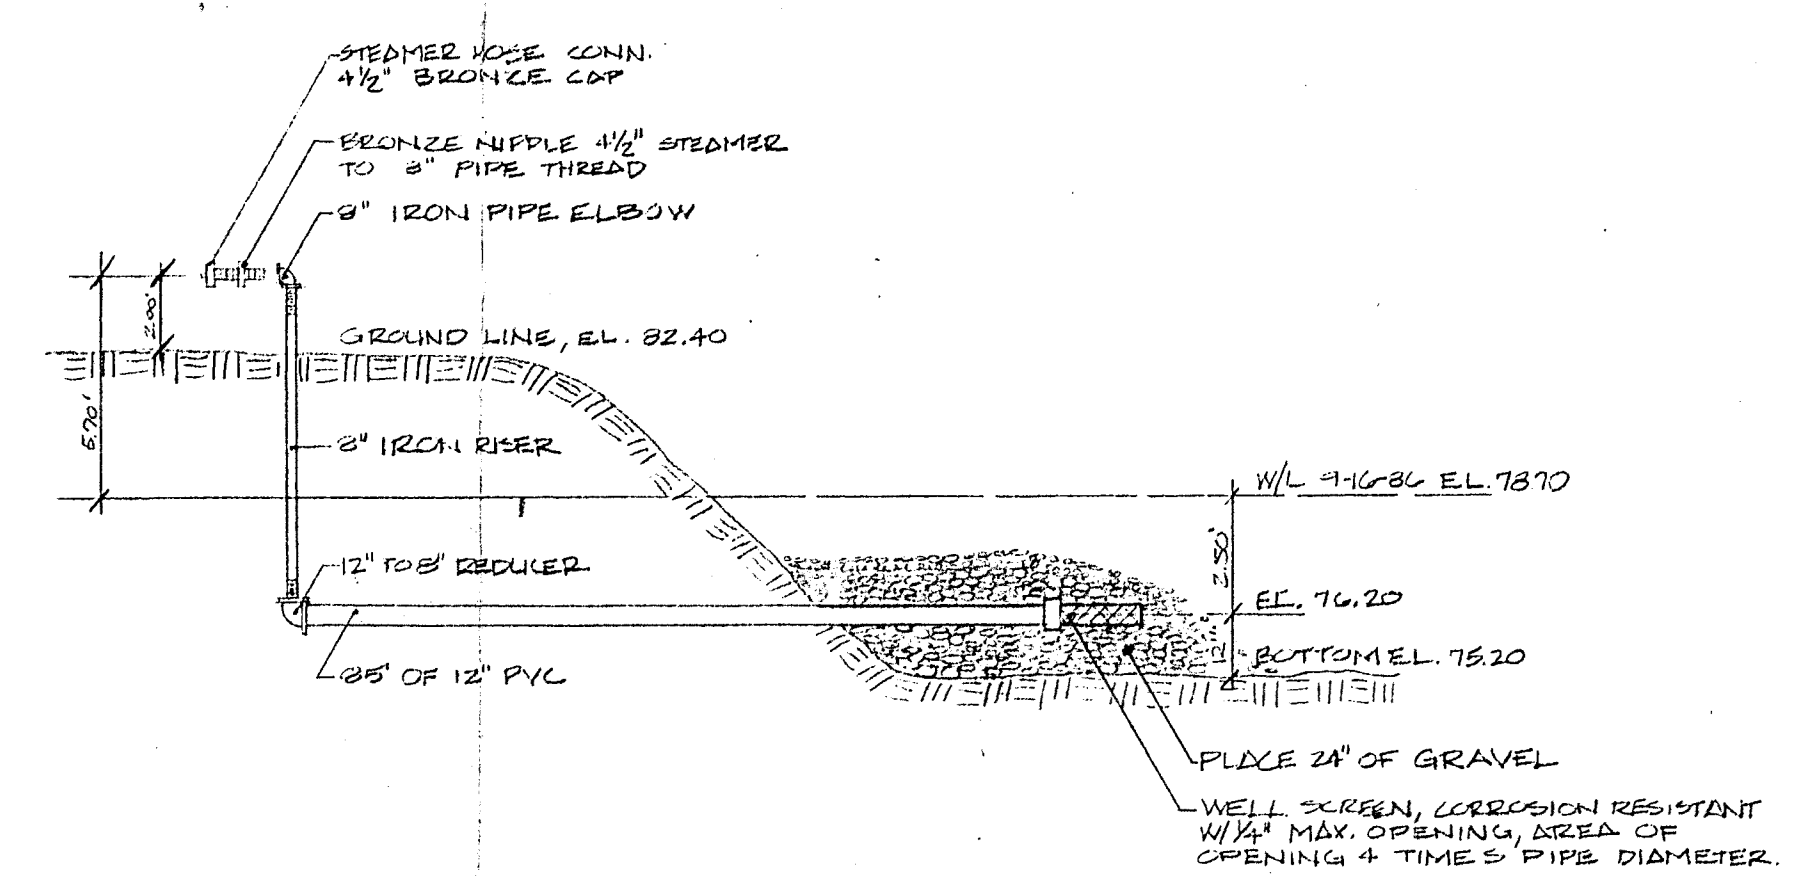 STEAMER HOSE CONN.
4½" BRONZE CAP
BRONZE NIPPLE 4½" STEAMER
TO 8" PIPE THREAD
8" IRON PIPE ELBOW
2.00'
GROUND LINE, EL. 82.40
5.70'
8" IRON RISER
W/L 9-16-86 EL. 78.70
2.50'
12" TO 8" REDUCER
EL. 76.20
BOTTOM EL. 75.20
85' OF 12" PVC
PLACE 24" OF GRAVEL
WELL SCREEN, CORROSION RESISTANT
W/ ¼" MAX. OPENING, AREA OF
OPENING 4 TIMES PIPE DIAMETER.